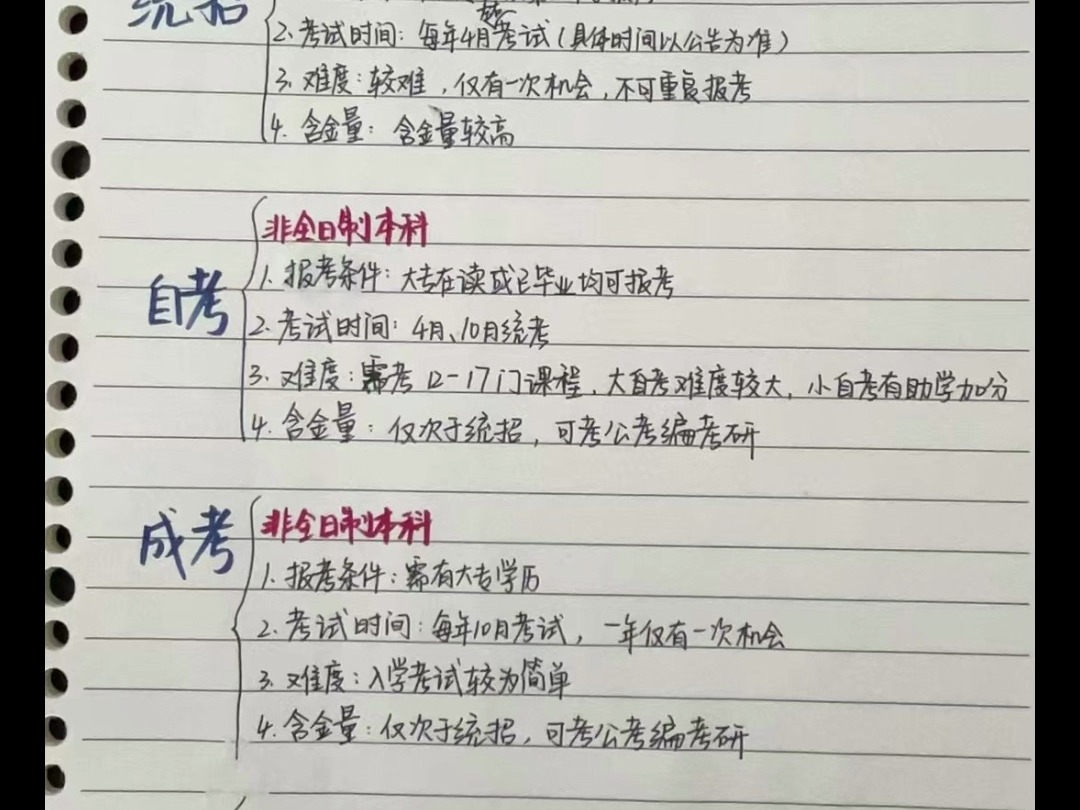 统招
2. 考试时间：每年4月考试（具体时间以公告为准）
3. 难度：较难，仅有一次机会，不可重复报考
4. 含金量：含金量较高
非全日制本科
自考
1. 报考条件：大专在读或已毕业均可报考
2. 考试时间：4月、10月统考
3. 难度：需考12-17门课程，大自考难度较大，小自考有助学加分
4. 含金量：仅次于统招，可考公考编考研
非全日制本科
成考
1. 报考条件：需有大专学历
2. 考试时间：每年10月考试，一年仅有一次机会
3. 难度：入学考试较为简单
4. 含金量：仅次于统招，可考公考编考研